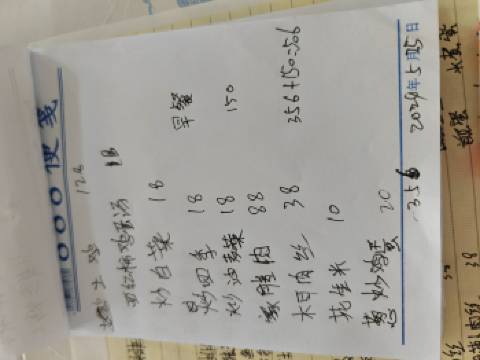 000便笺
土鸡 128
西红柿鸡蛋汤 18
炒白菜 18 早餐
炒四季 18
炒油麦菜 18 150
肉 88
木耳肉丝 38 356+150=506
花生米 10
葱炒鸡蛋 20
356 2024年5月25日
38